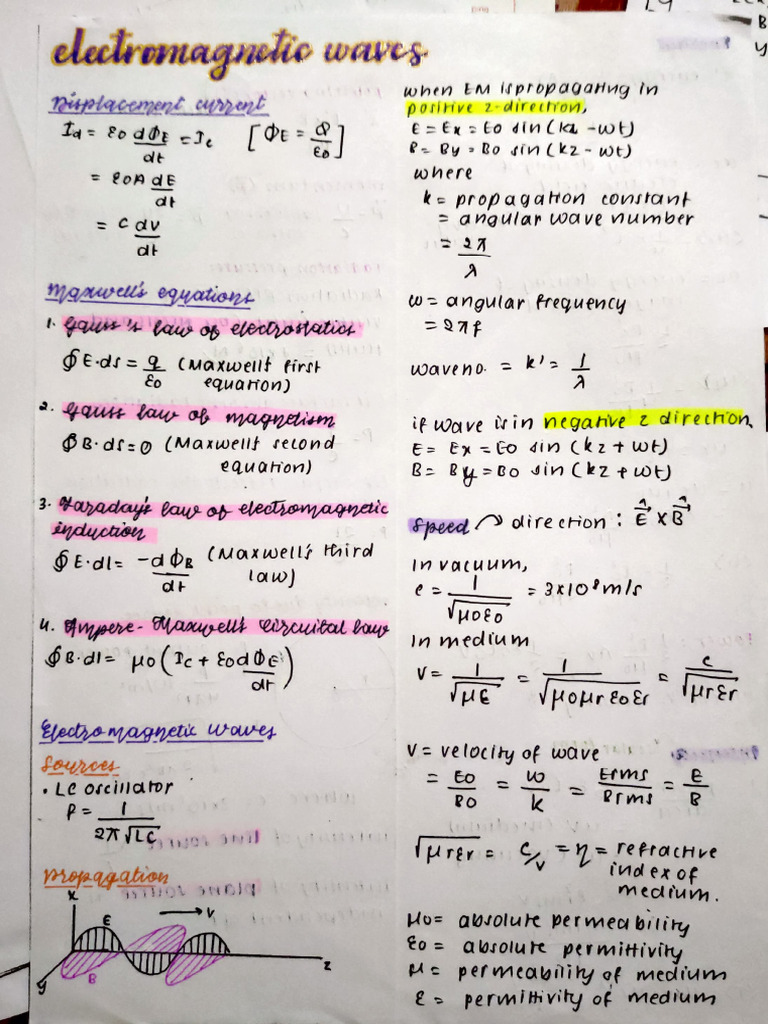 electromagnetic waves
Displacement current
Id = ε0 dΦE/dt = Ic [ΦE = q/ε0]
= ε0A dE/dt
= C dv/dt
Maxwell's equations
1. Gauss's law of electrostatics
∮E·ds = q/ε0 (Maxwell's first
equation)
2. Gauss law of magnetism
∮B·ds=0 (Maxwell's second
equation)
3. Faraday's law of electromagnetic
induction
∮E·dl = -dΦB/dt (Maxwell's third
law)
4. Ampere-Maxwell's circuital law
∮B·dl = μ0(Ic + ε0dΦE/dt)
Electromagnetic waves
Sources
• LC oscillator
f = 1/2π√LC
Propagation
x
E
→ v
z
y
B
when EM is propagating in
positive z-direction,
E = Ex = E0 sin(kz - wt)
B = By = B0 sin(kz - wt)
where
k = propagation constant
= angular wave number
= 2π/λ
ω = angular frequency
= 2πf
wave no. = k' = 1/λ
if wave is in negative z direction,
E = Ex = E0 sin(kz + wt)
B = By = B0 sin(kz + wt)
Speed → direction : E × B
In vacuum,
c = 1/√μ0ε0 = 3×10⁸ m/s
In medium
v = 1/√με = 1/√μ0μrε0εr = c/√μrεr
v = velocity of wave
= E0/B0 = ω/k = Erms/Brms = E/B
√μrεr = c/v = η = refractive
index of
medium.
μ0 = absolute permeability
ε0 = absolute permittivity
μ = permeability of medium
ε = permittivity of medium